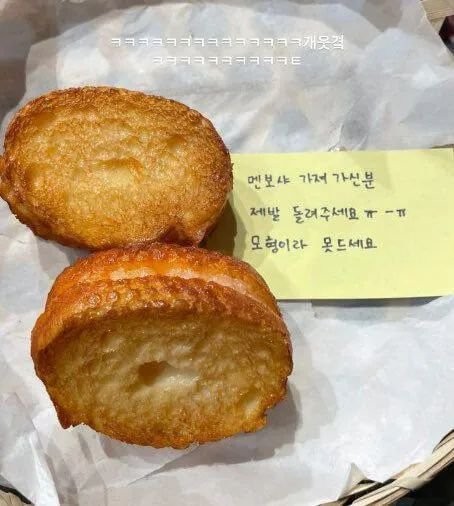 ㅋㅋㅋㅋㅋㅋㅋㅋㅋㅋㅋㅋㅋㅋ개웃겈
ㅋㅋㅋㅋㅋㅋㅋㅋㅋㅋㅌ
멘보샤 가져 가신분
제발 돌려주세요ㅠ-ㅠ
모형이라 못드세요